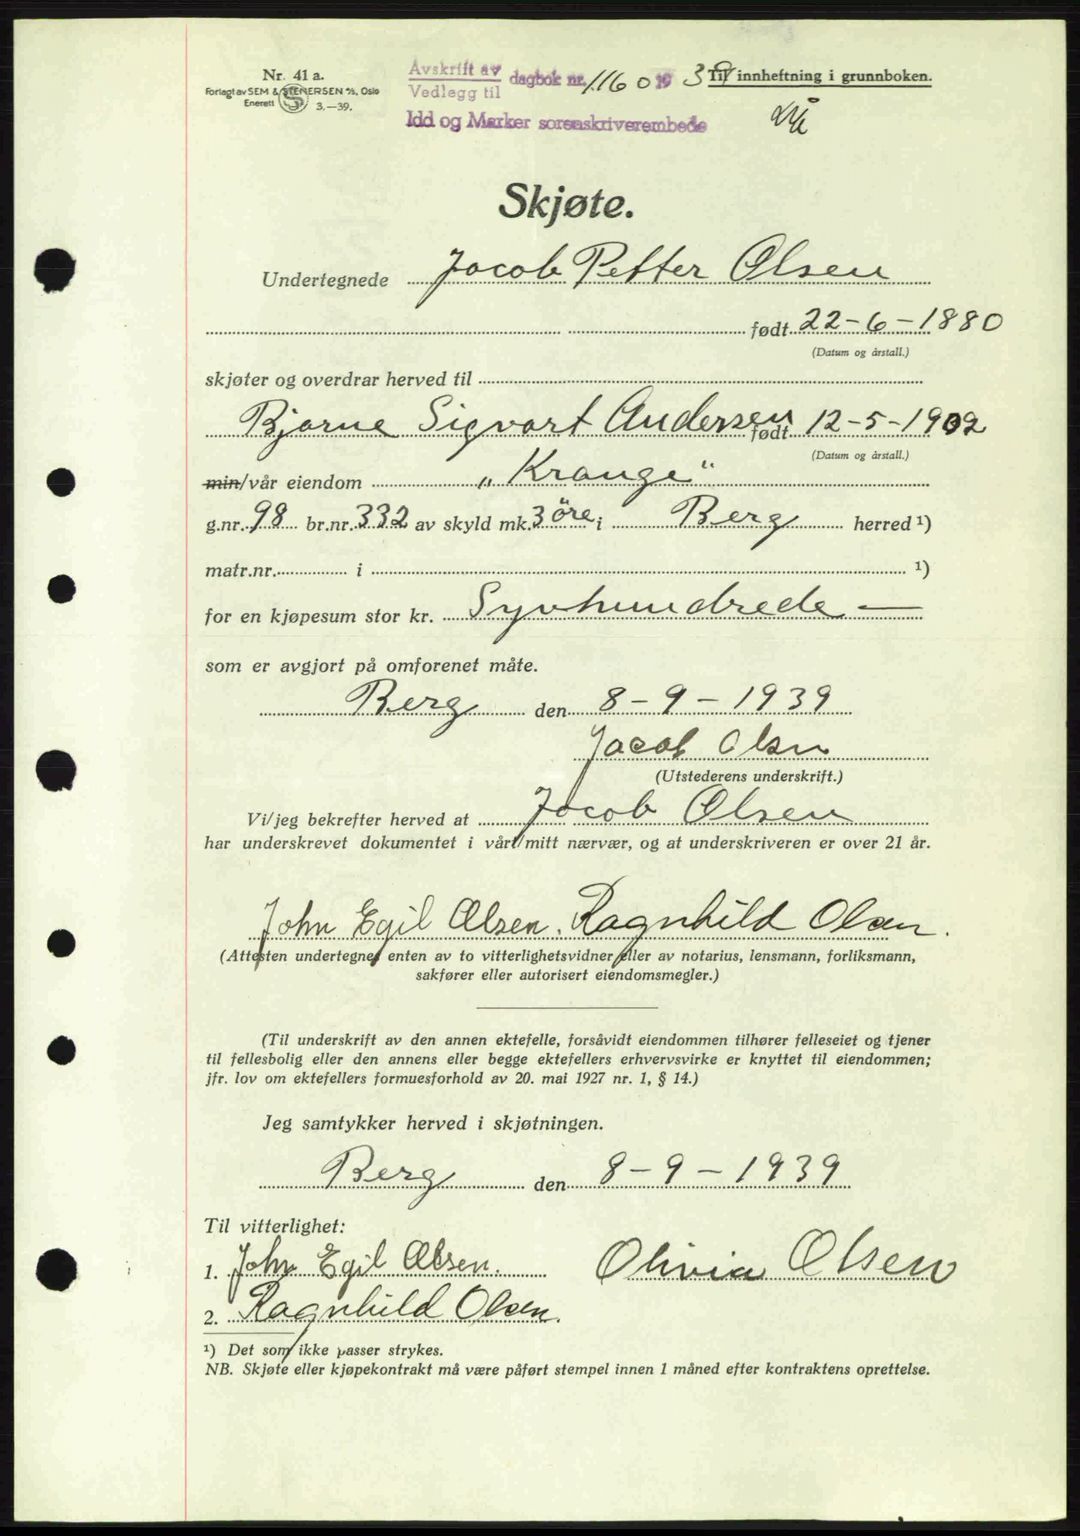 Nr. 41 a.
Forlagt av SEM & STENERSEN A/S, Oslo
Enerett S 3.—39.
Avskrift av
Vedlegg til
dagbok nr. 1160 19 39 Til innheftning i grunnboken.
Idd og Marker sorenskriverembede
Skjøte.
Undertegnede Jacob Petter Olsen
født 22-6-1880
(Datum og årstall.)
skjøter og overdrar herved til
Bjarne Sigvart Andersen født 12-5-1902
(Datum og årstall.)
min/vår eiendom „Krange"
g.nr. 98 br.nr. 332 av skyld mk. 3 öre i Berg herred ¹)
matr.nr. i ¹)
for en kjøpesum stor kr. Syvhundrede —
som er avgjort på omforenet måte.
Berg den 8-9-1939
Jacob Olsen
(Utstederens underskrift.)
Vi/jeg bekrefter herved at Jacob Olsen
har underskrevet dokumentet i vårt/mitt nærvær, og at underskriveren er over 21 år.
John Egil Olsen. Ragnhild Olsen.
(Attesten undertegnes enten av to vitterlighetsvidner eller av notarius, lensmann, forliksmann,
sakfører eller autorisert eiendomsmegler.)
(Til underskrift av den annen ektefelle, forsåvidt eiendommen tilhører felleseiet og tjener
til fellesbolig eller den annens eller begge ektefellers erhvervsvirke er knyttet til eiendommen;
jfr. lov om ektefellers formuesforhold av 20. mai 1927 nr. 1, § 14.)
Jeg samtykker herved i skjøtningen.
Berg den 8-9-1939
Til vitterlighet:
1. John Egil Olsen. Olivia Olsen
2. Ragnhild Olsen.
¹) Det som ikke passer strykes.
NB. Skjøte eller kjøpekontrakt må være påført stempel innen 1 måned efter kontraktens oprettelse.